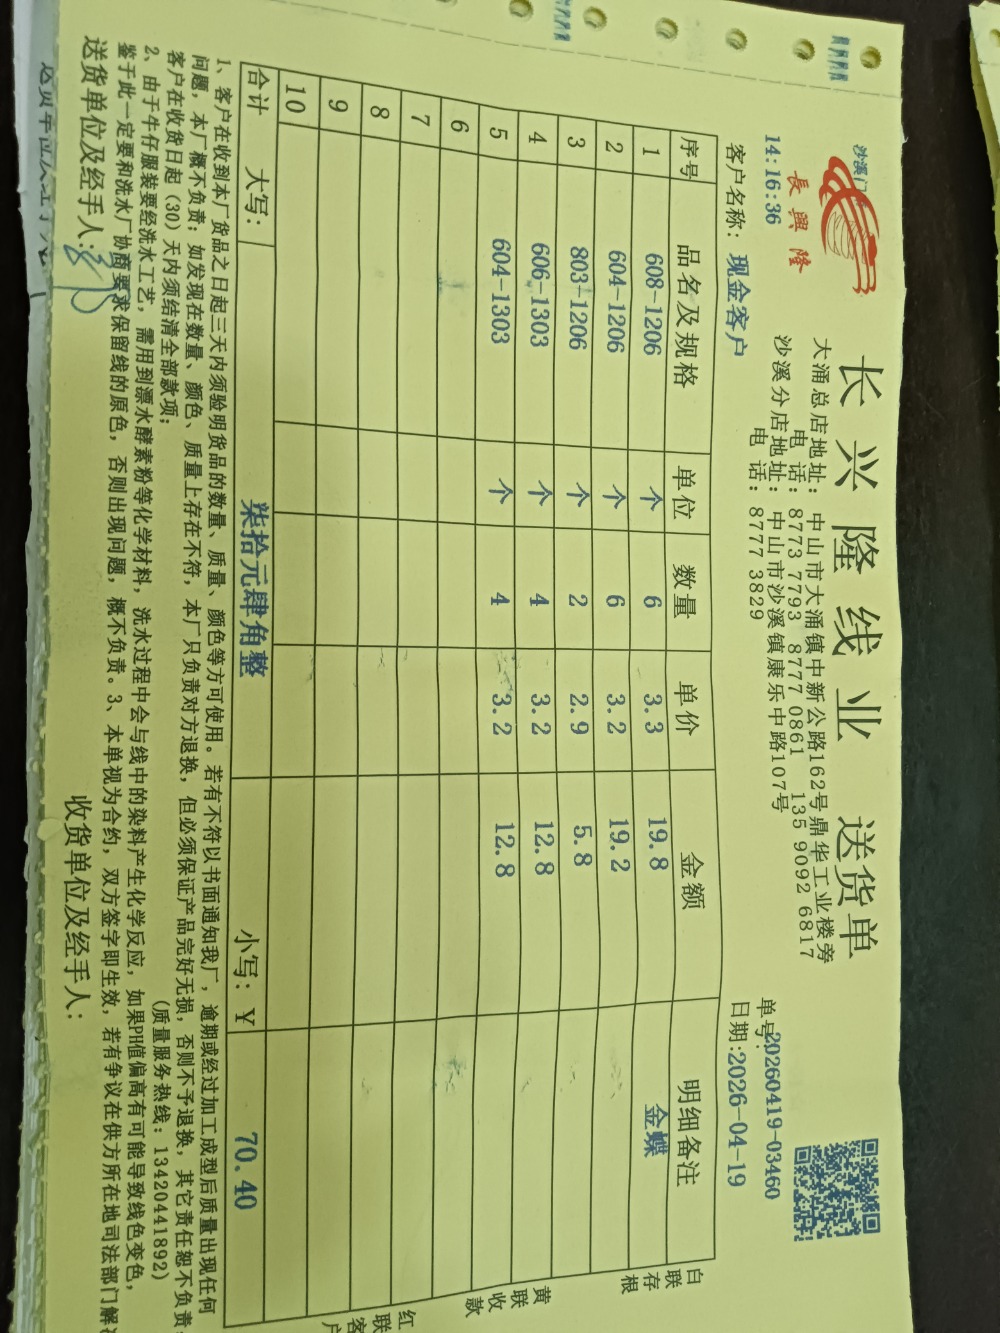 沙溪门
長興隆
长兴隆线业 送货单
大涌总店地址：中山市大涌镇中新公路162号鼎华工业楼旁
电 话：8773 7793 8777 0861 135 9092 6817
沙溪分店地址：中山市沙溪镇康乐中路107号
电 话：8777 3829
14:16:36
单号:20260419-03460
客户名称：现金客户 日期:2026-04-19
序号 品名及规格 单位 数量 单价 金额 明细备注
1 608-1206 个 6 3.3 19.8 金蝶
2 604-1206 个 6 3.2 19.2
3 803-1206 个 2 2.9 5.8
4 606-1303 个 4 3.2 12.8
5 604-1303 个 4 3.2 12.8
6
7
8
9
10
合计 大写：柒拾元肆角整 小写：￥ 70.40
白联存根
黄联收款
红联客户
1、客户在收到本厂货品之日起三天内须验明货品的数量、质量、颜色等方可使用。若有不符以书面通知我厂，逾期或经过加工成型后质量出现任何
问题，本厂概不负责；如发现在数量、颜色、质量上存在不符，本厂只负责对方退换，但必须保证产品完好无损，否则不予退换，其它责任恕不负责。
客户在收货日起（30）天内须结清全部款项； （质量服务热线：13420441892）
2、由于牛仔服装要经洗水工艺，需用到漂水酵素粉等化学材料，洗水过程中会与线中的染料产生化学反应，如果PH值偏高有可能导致线色变色，
鉴于此一定要和洗水厂协商要求保留线的原色，否则出现问题，概不负责。3、本单视为合约，双方签字即生效，若有争议在供方所在地司法部门解
送货单位及经手人： 收货单位及经手人：